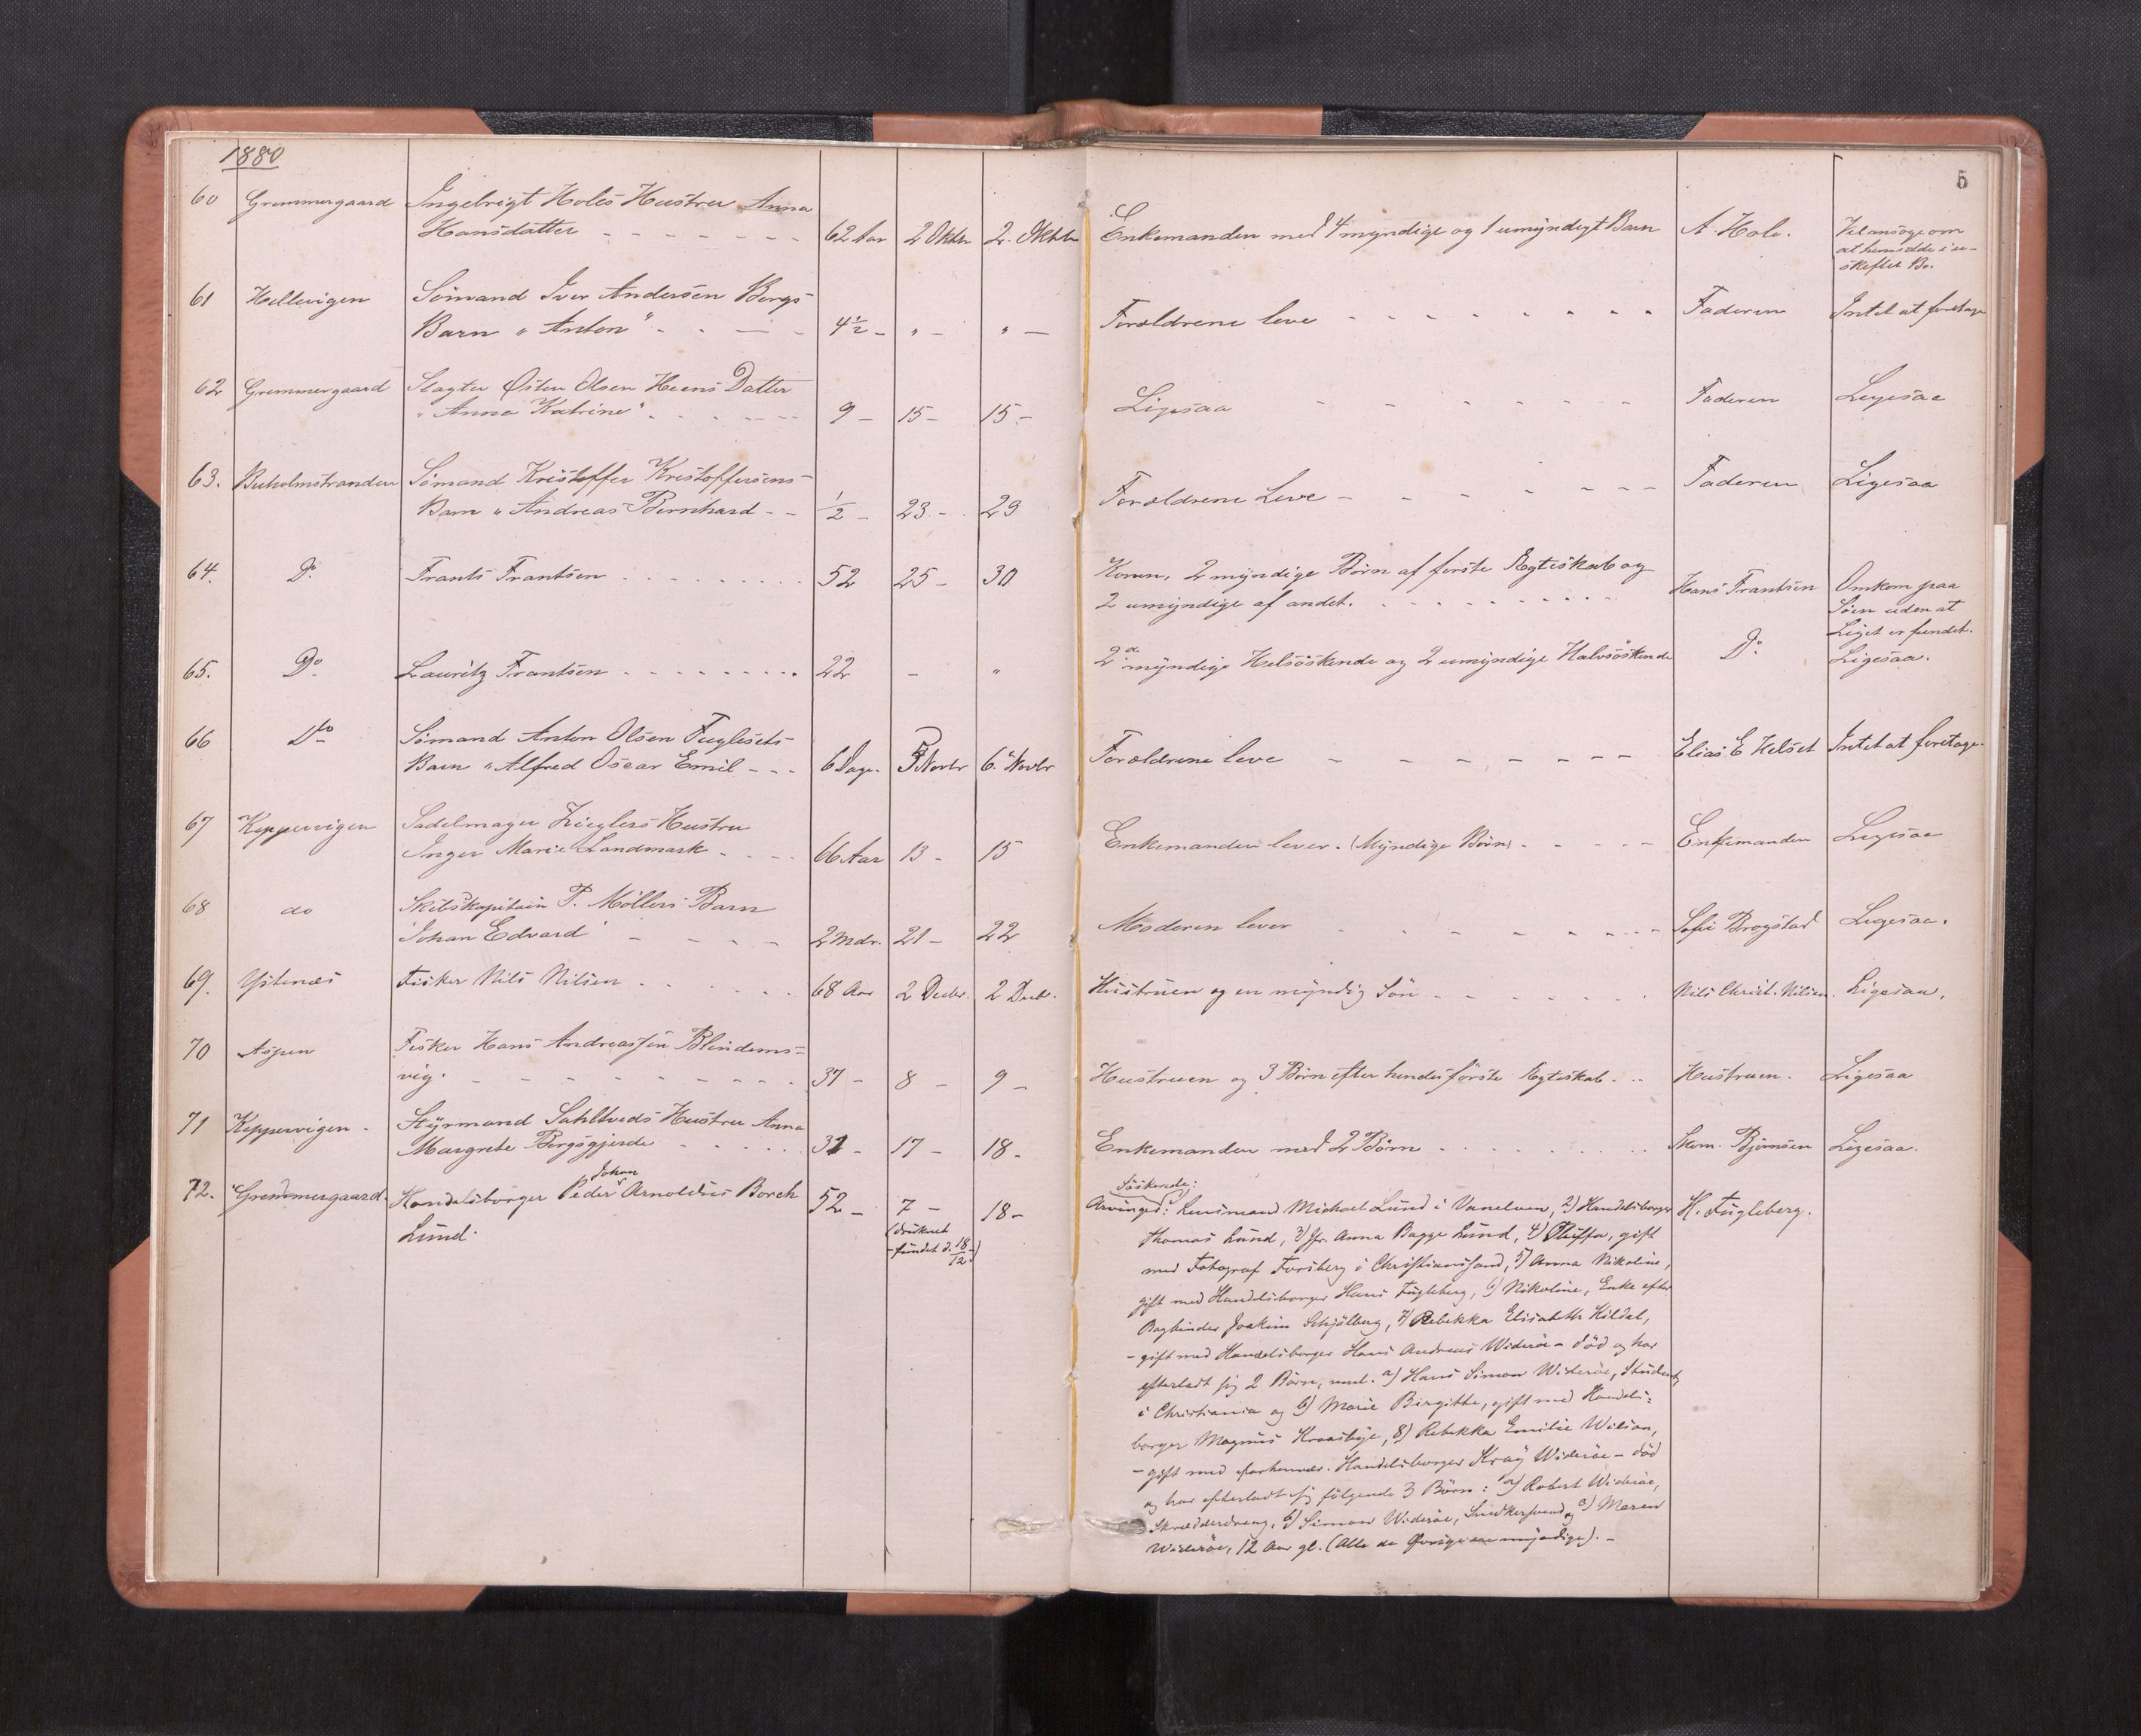 1880
5
60 Gremmergaard Ingebrigt Holes Hustru Anna
Hansdatter 62 Aar 2 Oktbr 2. Oktbr Enkemanden med 4 myndige og 1 umyndigt Barn A. Hole. Vil ansøge om
at hensidde i u-
skiftet Bo.
61 Hellevigen Sömand Iver Andersen Bergs
Barn "Anton" 4½ - " - " - Forældrene leve Faderen Intet at foretage
62 Gremmergaard Slagter Østen Olsen Heens Datter
"Anna Katrine" 9 - 15 - 15 - Ligesaa Faderen Ligesaa
63. Buholmstranden Sömand Kristoffer Kristoffersens
Barn "Andreas Bernhard - - ½ - 23 - 29 Forældrene Leve Faderen Ligesaa
64. Do Frants Frantsen 52 25 - 30 Konen, 2 myndige Börn af første Ægteskab og
2 umyndige af andet. Hans Frantsen Omkom paa
Söen uden at
Liget er fundet.
65. Do Lauritz Frantsen 22 - " 2 myndige Helsöskende og 2 umyndige Halvsöskende Do Ligesaa.
66 Do Sömand Anton Olsen Fuglesets
Barn "Alfred Oscar Emil - - - 6 Dage. 5 Novbr 6. Novbr Forældrene leve Elias E Helset Intet at foretage.
67 Keppervigen Sadelmager Zieglers Hustru
Inger Marie Landmark 66 Aar 13 - 15 Enkemanden lever. (Myndige Börn) Enkemanden Ligesaa
68 do Skibskapitain P. Möllers Barn
Johan Edvard 2 Mdr. 21 - 22 Moderen lever Sofie Brogstad Ligesaa.
69. Ystenæs Fisker Nils Nilsen 68 Aar 2 Decbr. 2 Decbr. Hustruen og en myndig Sön Nils Christ. Nilsen. Ligesaa.
70 Aspen Fisker Hans Andreassen Blindems-
vig. 37 - 8 - 9 - Hustruen og 3 Börn efter hendes förste Ægteskab. Hustruen. Ligesaa
71 Keppervigen - Styrmand Sahltveds Hustru Anna
Margrete Bergsgjerde 31 - 17 - 18 - Enkemanden med 2 Börn Skom. Björnsen Ligesaa.
72. Gremmergaard. Handelsborger Peder Johan Arnoldus Borch
Lund. 52 - 7 -
(druknet
- fundet d. 18/12 -) 18 -
Söskende:
Arvinger: Lensmand Michael Lund i Vanelven, 2) Handelsborger H. Fugleberg.
Thomas Lund, 3) Jfr. Anna Bagge Lund, 4) gift
med Fotograf Forsberg i Christianssand, 5) Anna Nikoline,
gift med Handelsborger Hans Fugleberg, 6) Nikoline, Enke efter
Bogbinder Joakim Schjölberg, 7) Rebekka Elisabeth Kildal,
- gift med Handelsborger Hans Andreas Wideröe - död og har
efterladt sig 2 Börn, neml. a) Hans Simon Wideröe, Student
i Christiania og b) Marie Birgitte, gift med Handels-
borger Magnus Kraasbye, 8) Rebekka Emilie Wilson,
- gift med forhenvær. Handelsborger Kraÿ Wideröe - död
og har efterladt sig fölgende 3 Börn: a) Robert Wideröe,
Skrædderdreng, b) Simon Wideröe, Snedkersvend og c) Maren
Wideröe, 12 Aar gl. (Alle de Øvrige ere myndige). -